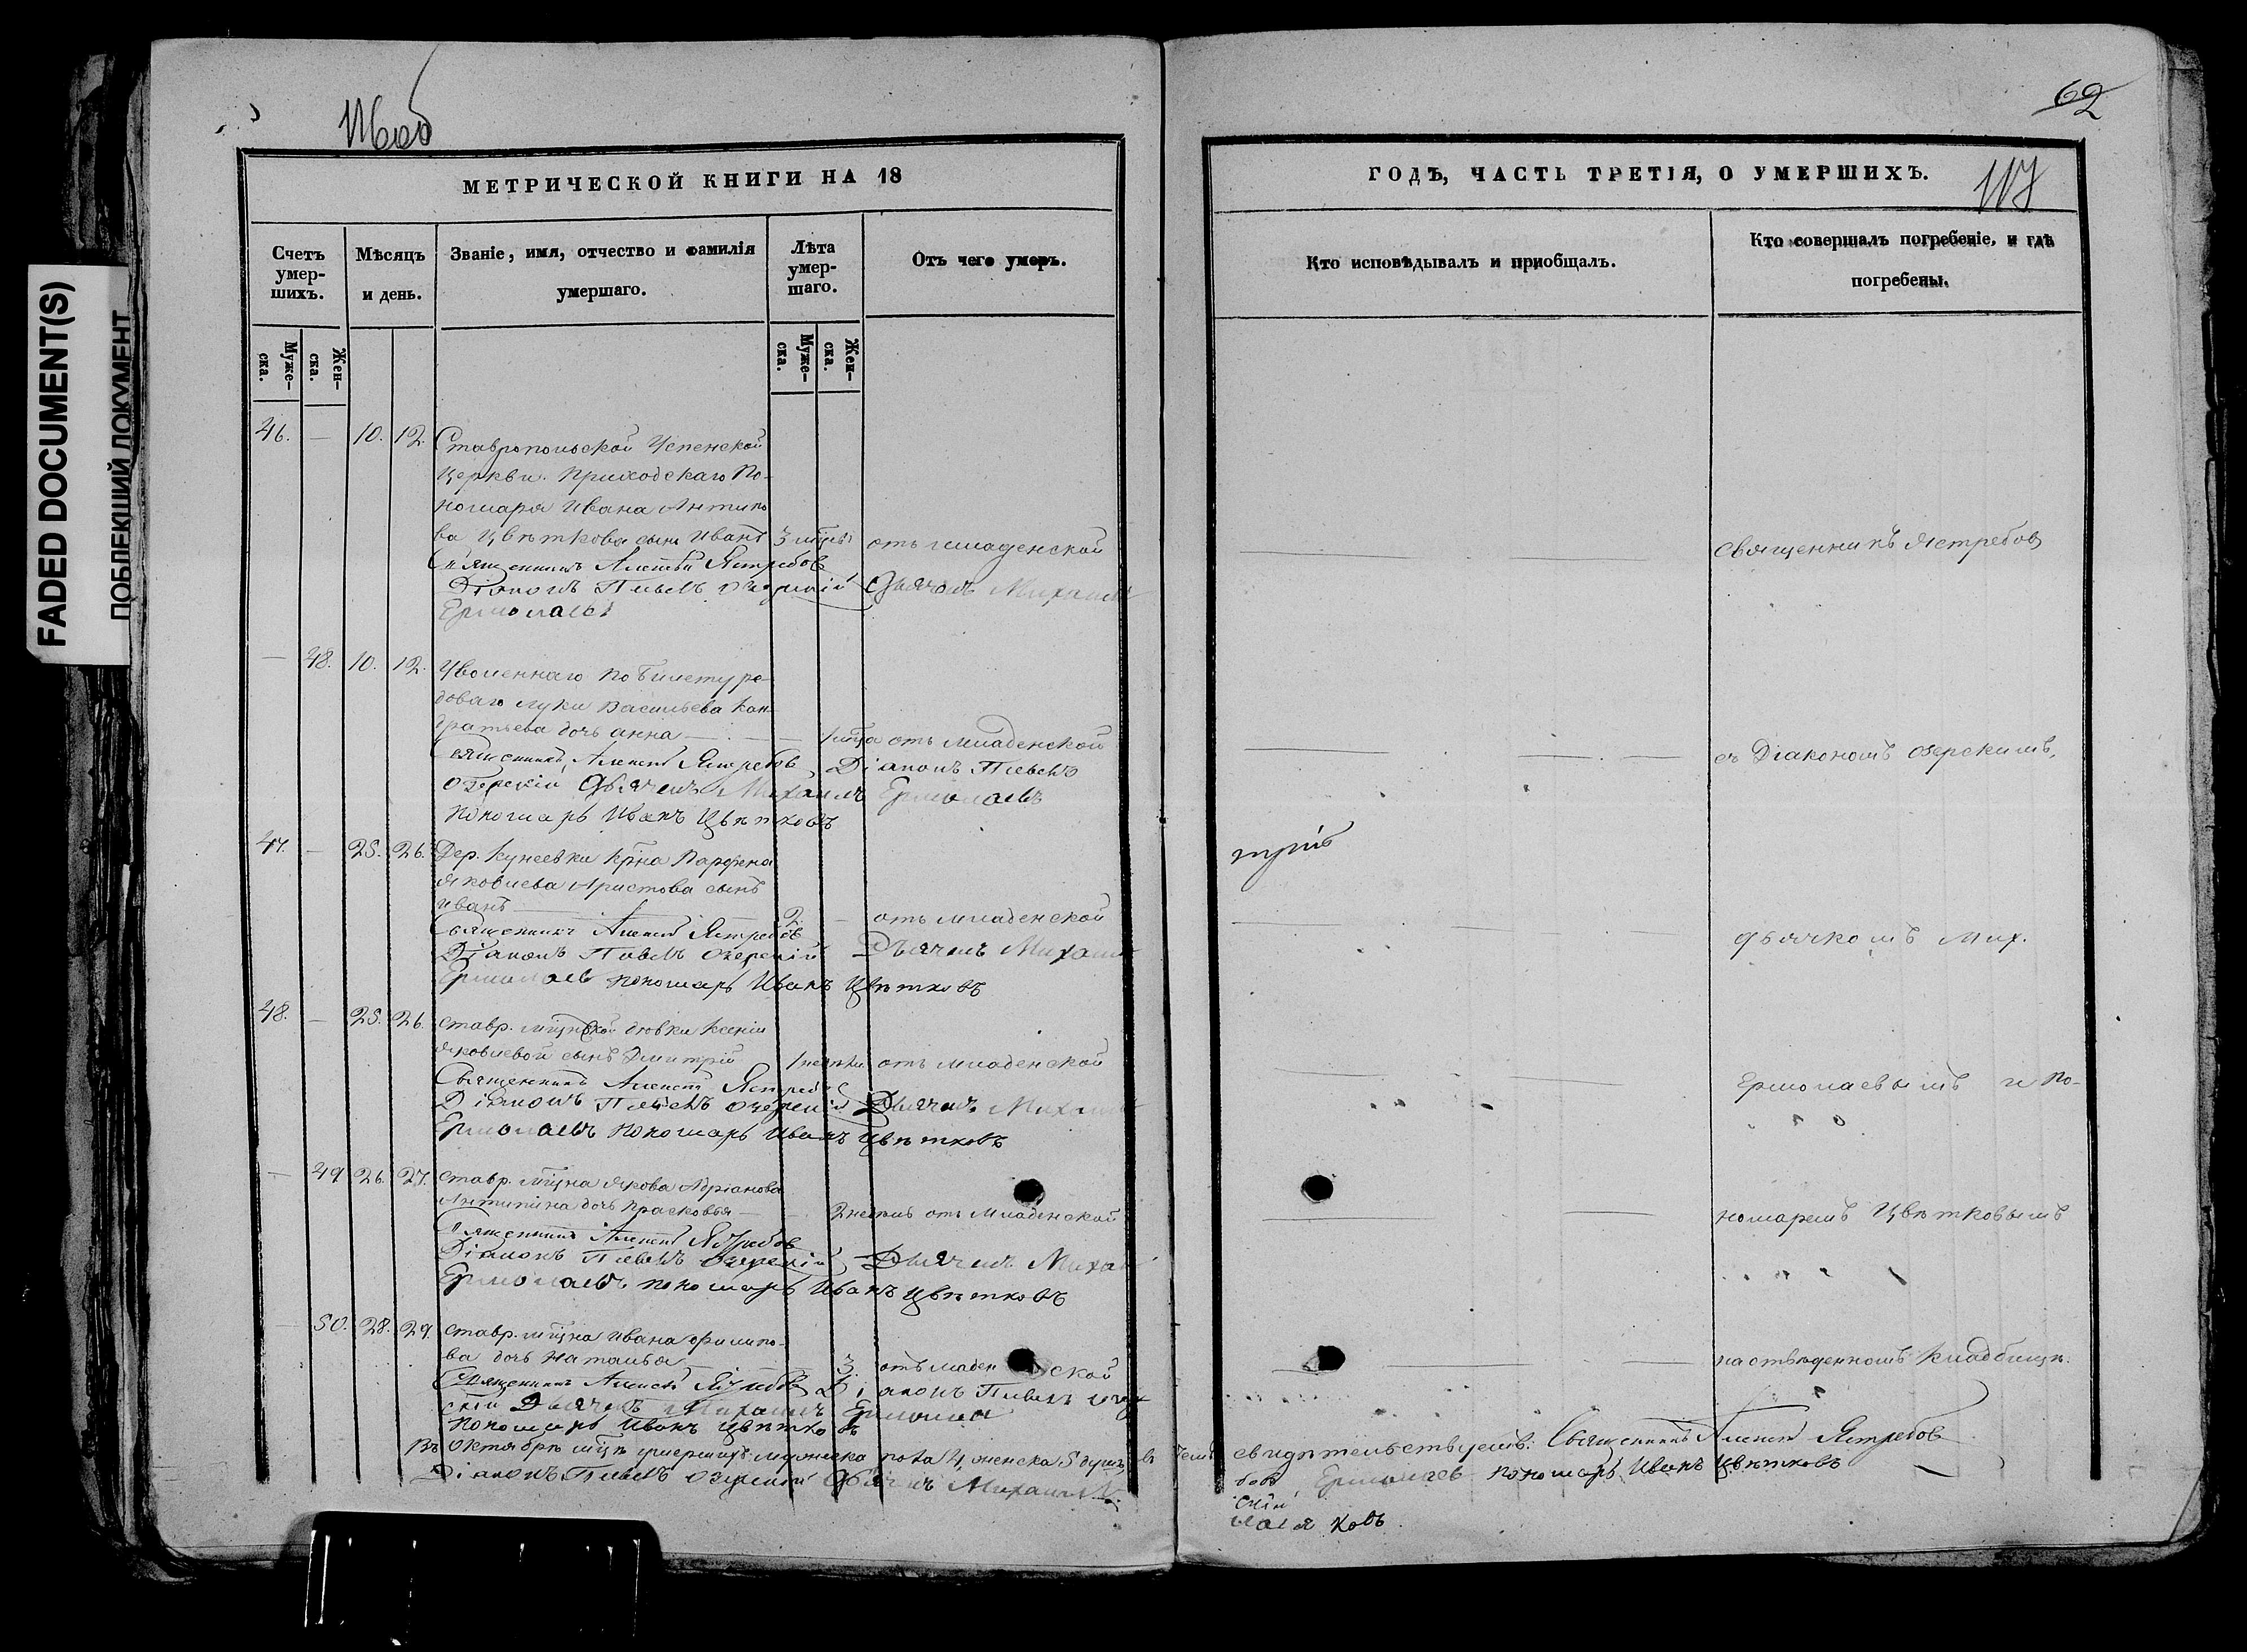 62
МЕТРИЧЕСКОЙ КНИГИ НА 18
ГОДЪ, ЧАСТЬ ТРЕТІЯ, О УМЕРШИХЪ.
117
Счетъ умер-шихъ.
Муже-ска.
Жен-ска.
Мѣсяцъ и день.
Званіе, имя, отчество и фамилія умершаго.
Лѣта умер-шаго.
Муже-ска.
Жен-ска.
Отъ чего умеръ.
Кто исповѣдывалъ и пріобщалъ.
Кто совершалъ погребеніе, и гдѣ погребены.
46. — 10. 12. Ставропольской Успенской
церкви. Приходскаго По-
номаря Ивана Антипо
ва Цвѣткова сынъ Иванъ 3 отъ младенской
Священникъ Ястребовъ
Священникъ Алексѣй Ястребов
Діаконъ Павелъ Озерскій Дьячокъ Михаилъ
Ермолаевъ
— 48. 10. 12. Уволеннаго по билету ря-
доваго Луки Васильева Кон-
дратьева дочь Анна — отъ младенской
съ Діакономъ Озерскимъ,
Священникъ Алексѣй Ястребов Діаконъ Павелъ
Озерскій Дьячекъ Михаилъ Ермолаевъ
Пономарь Иванъ Цвѣтковъ
47. — 25. 26. Дер. Кунеевки крна Парфена
Яковлева Аристова сынъ
Иванъ — 2. — отъ младенской
дьячкомъ Мих.
Священникъ Алексѣй Ястребов
Діаконъ Павелъ Озерскій Дьячекъ Михаилъ
Ермолаевъ Пономарь Иванъ Цвѣтковъ
48. — 25. 26. Ставр. мщнской дѣвки Ксеніи
Яковлевой сынъ Дмитрій отъ младенской
Ермолаевымъ и По-
Священникъ Алексѣй Ястребов
Діаконъ Павелъ Озерскій Дьячекъ Михаилъ
Ермолаевъ Пономарь Иванъ Цвѣтковъ
— 49 26. 27. Ставр. мщна Якова Адріанова
Антипина дочь Прасковья — 2 отъ младенской
номаремъ Цвѣтковымъ
Священникъ Алексѣй Ястребов
Діаконъ Павелъ Озерскій Дьячекъ Михаил
Ермолаевъ Пономарь Иванъ Цвѣтковъ
— 50. 28. 29. Ставр. мщна Ивана Филипо-
ва дочь Наталья — 3. отъ младенской
на отведенномъ кладбищѣ.
Священникъ Алексѣй Ястребов Діаконъ Павелъ Озер
скій Дьячекъ Михаилъ Ермолаев
Пономарь Иванъ Цвѣтковъ
Въ Октябрѣ мцѣ умершихъ мужеска пола 4, женска 5 душъ, въ чемъ свидѣтельствуемъ: Священникъ Алексѣй Ястребов
Діаконъ Павелъ Озерскій Дьячекъ Михаилъ Ермолаев Пономарь Иванъ Цвѣтковъ